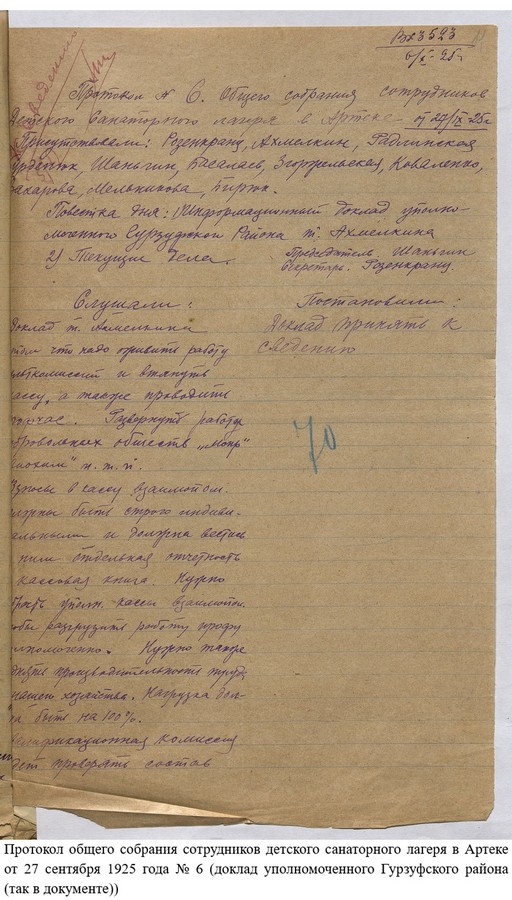 Вх 3523
6/X-25г
Протокол № 6. Общего собрания сотрудников
Детского Санаторного лагеря в Артеке от 27/IX 25г
Присутствовали: Розенкранц, Ахмелкин, Радлинская
Шаньгин, Басалаев, Згоржельская, Коваленко,
Мельникова, Пирюк.
Повестка дня: 1) Информационный доклад уполно-
моченного Гурзуфского Района т. Ахмелкина
2) Текущие дела.
Председатель Шаньгин
Секретарь Розенкранц.
Слушали:
Доклад т. Ахмелкина
что надо оживить работу
и втянуть
массу, а также проводить
Развернуть работу
обществ „Мопр"
и т. п.
Взносы в кассу взаимопом.
быть строго индиви-
альными и должна вестись
ним отдельная отчетность
кассовая книга. Нужно
уполн. кассы взаимопом.
разгрузить работу профу
лномоченно. Нужно также
производительность труда
нашего хозяйства. Нагрузка дол-
быть на 100%.
комиссия
проверять состав
Постановили:
Доклад принять к
сведению
70
Протокол общего собрания сотрудников детского санаторного лагеря в Артеке
от 27 сентября 1925 года № 6 (доклад уполномоченного Гурзуфского района
(так в документе))